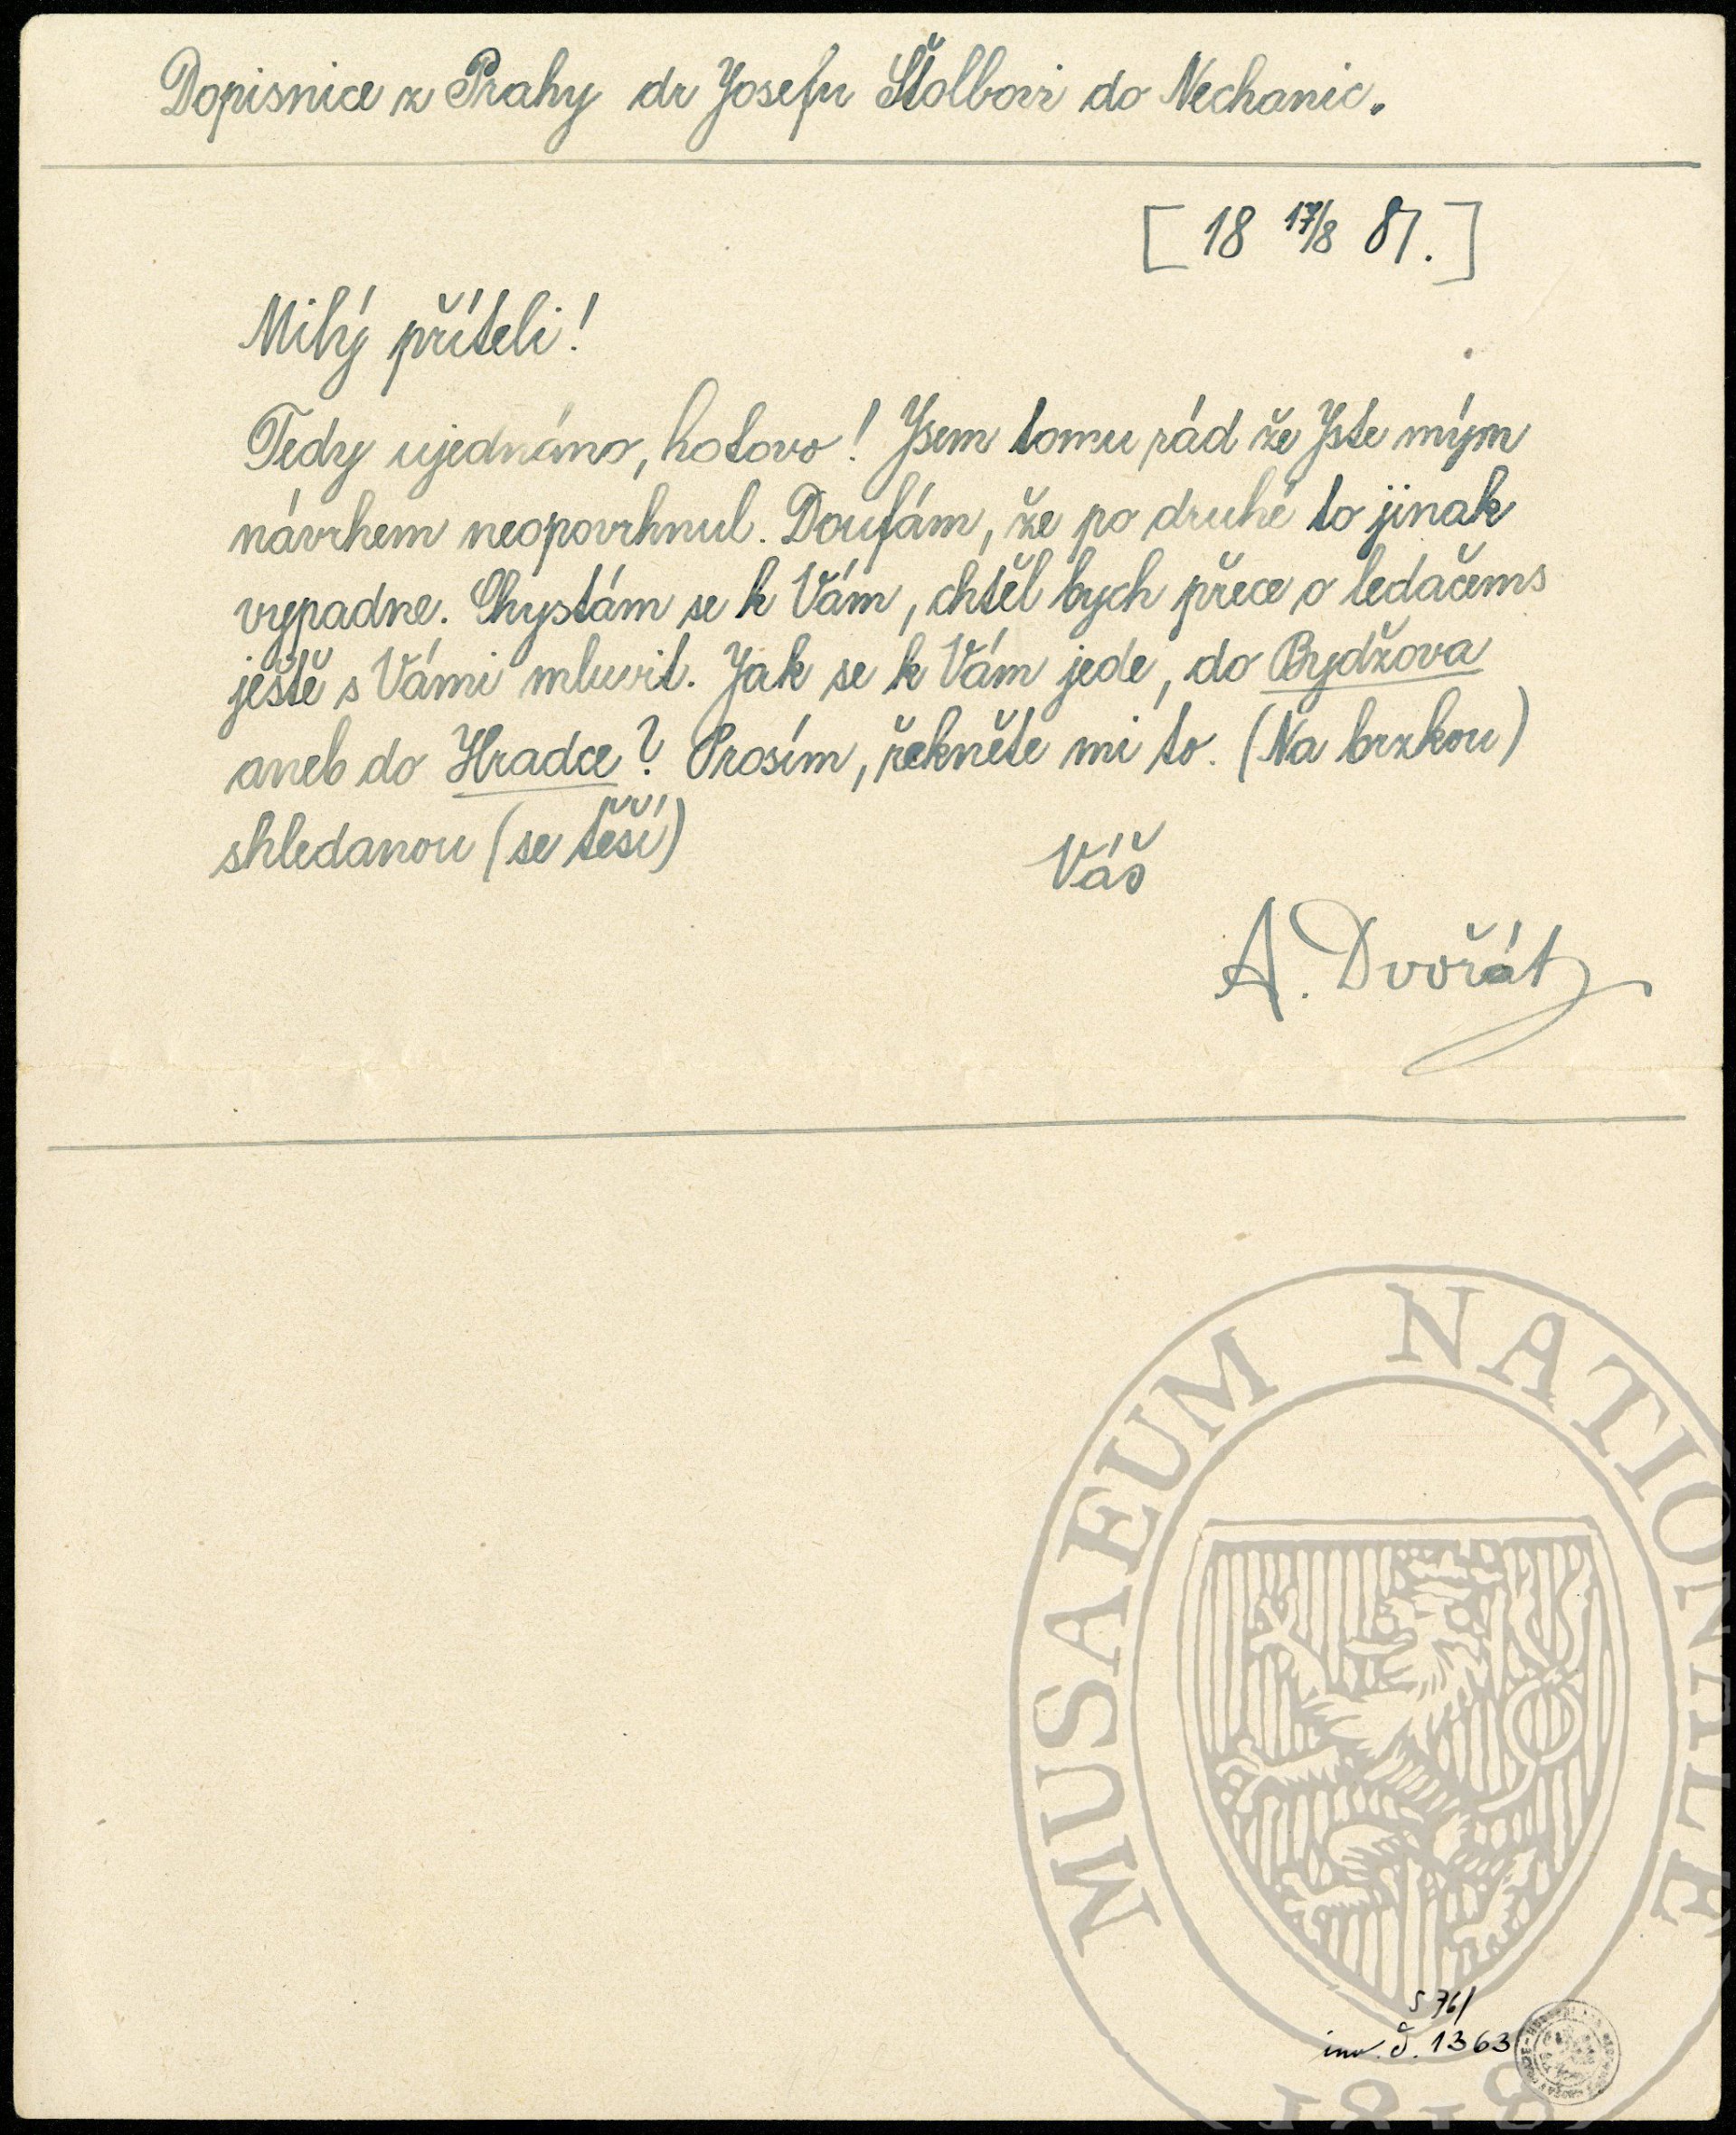 Dopisnice z Prahy dr Josefu Štolbovi do Nechanic.
[ 18 17/8 81. ]
Milý příteli!
Tedy ujednáno, hotovo! Jsem tomu rád že Jste mým
návrhem neopovrhnul. Doufám, že po druhé to jinak
vypadne. Chystám se k Vám, chtěl bych přece o ledačems
ještě s Vámi mluvit. Jak se k Vám jede, do Bydžova
aneb do Hradce? Prosím, řekněte mi to. (Na brzkou)
shledanou (se těší)
Váš
A. Dvořák
MUSAEUM NATIONALE
S 76/
inv. č. 1363
1818